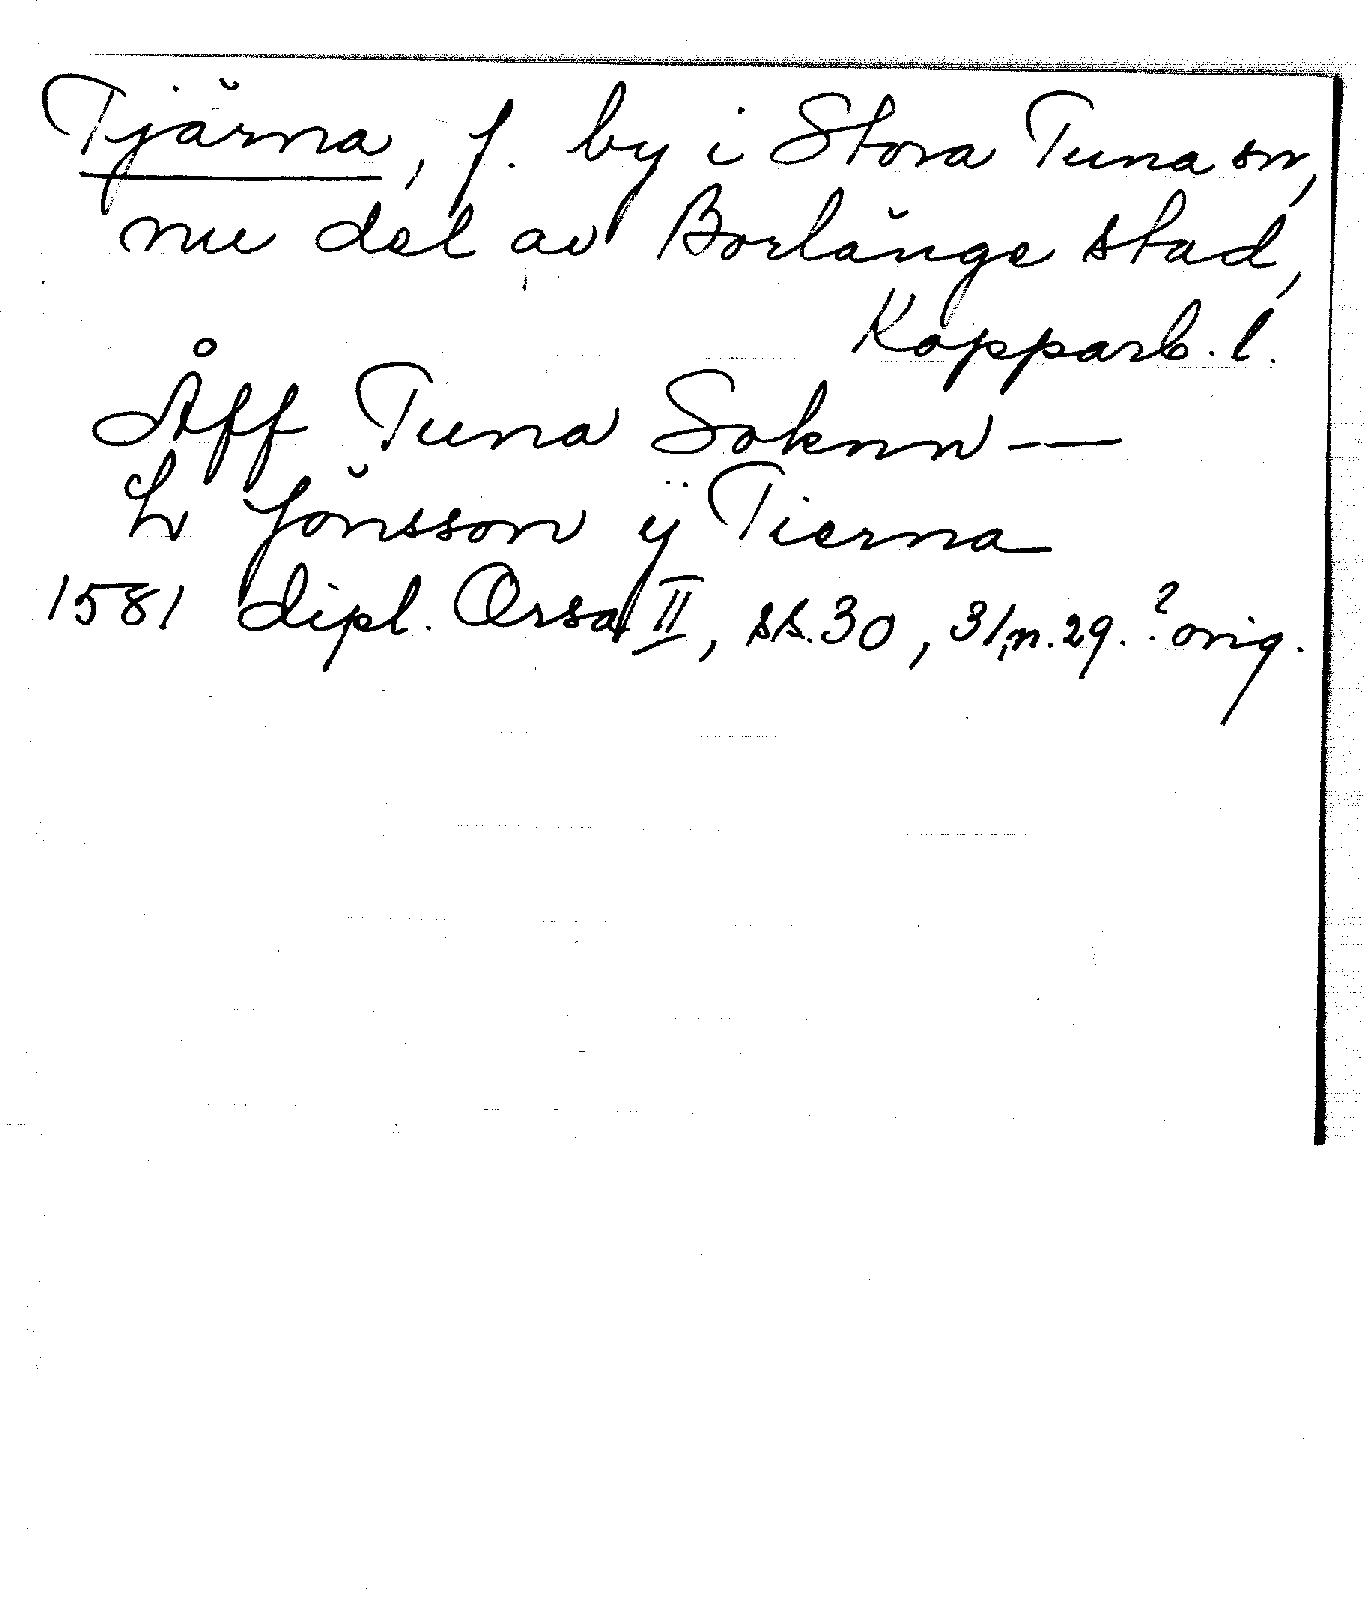 Tjärna, f. by i Stora Tuna sn,
nu del av Borlänge stad,
Kopparb. l.
Åff Tuna Soknn —
L Jönsson ÿ Tierna
1581 dipl. Orsa II, ss. 30, 31, n. 29. ? orig.